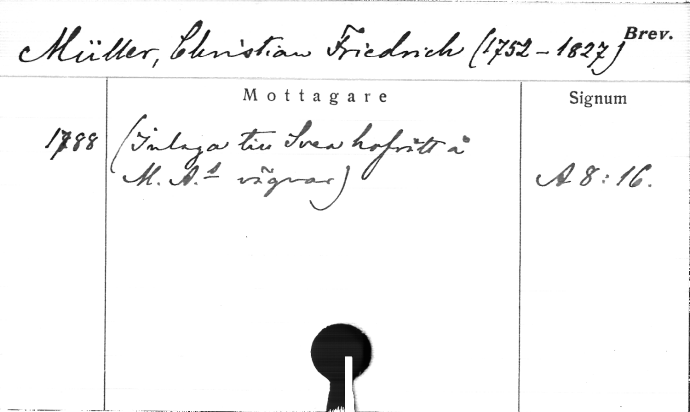 Müller, Christian Friedrich (1752-1827) Brev.
Mottagare Signum
1788 (Inlaga till Svea hofrätt å
M. A:s vägnar) A 8:16.